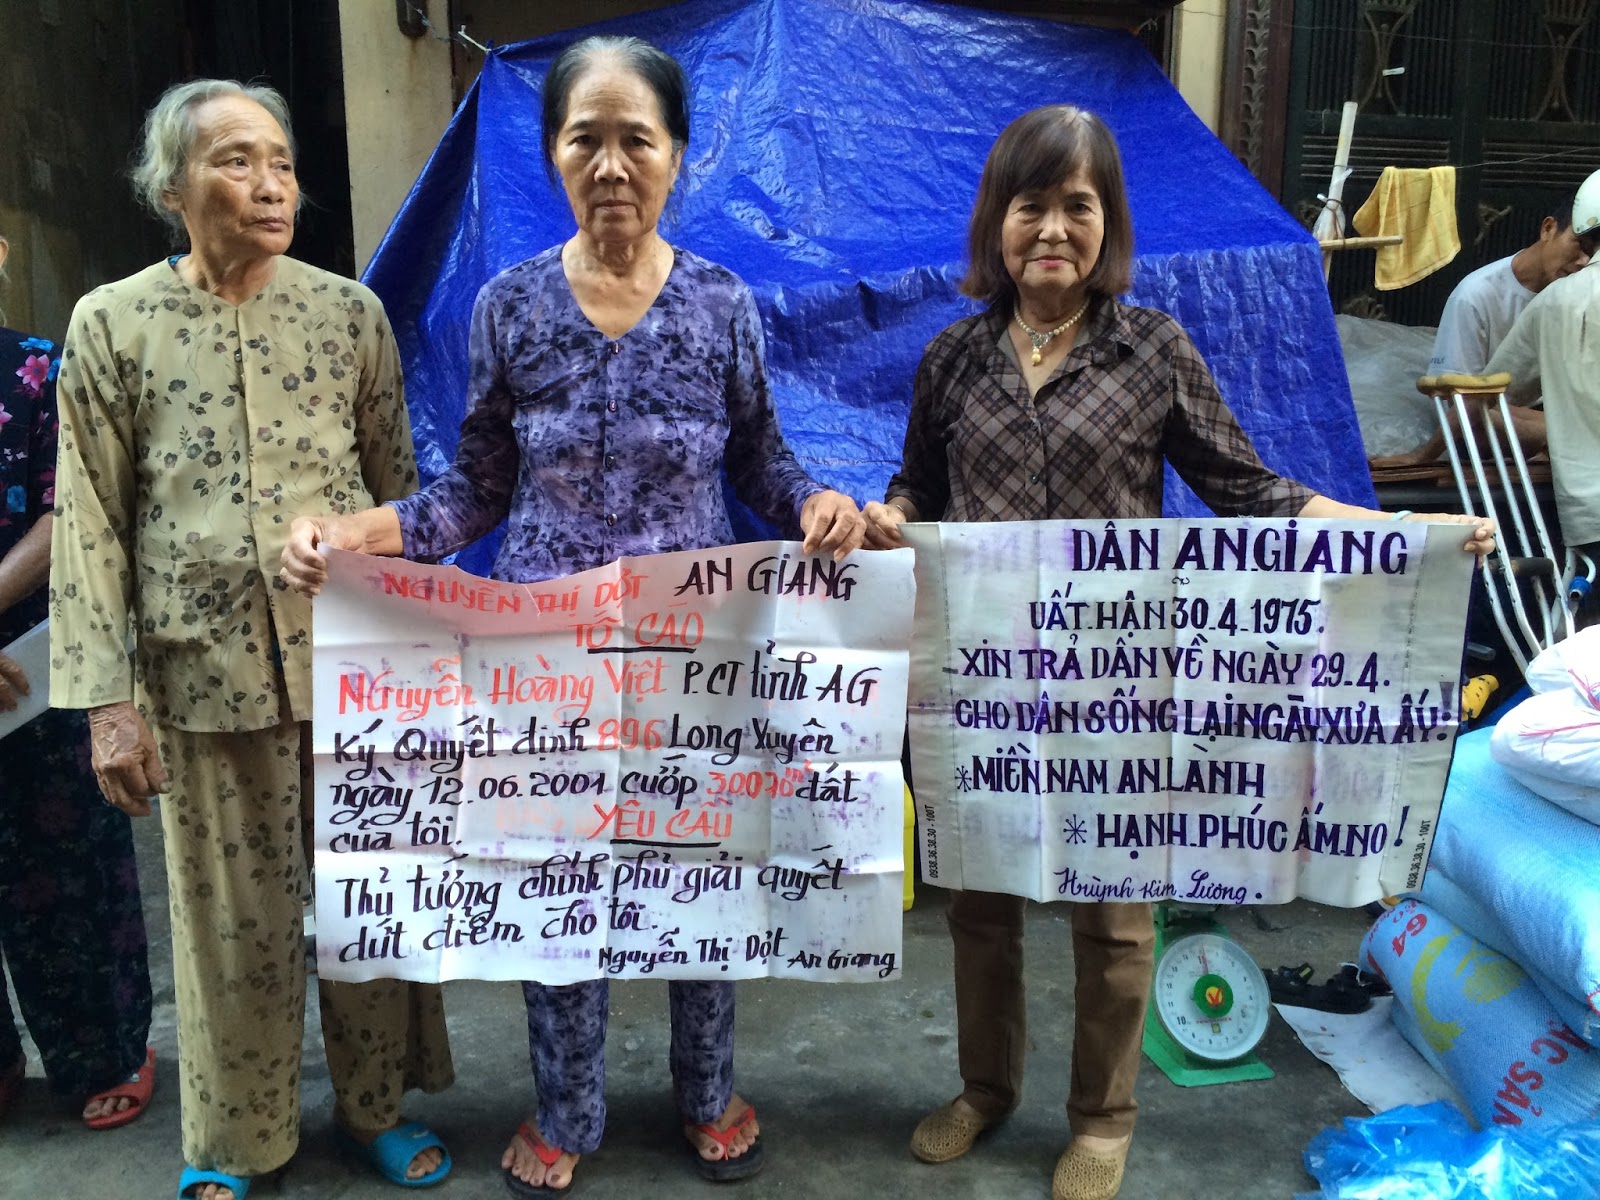 NGUYỄN THỊ DỘT AN GIANG
TỐ CÁO
NGUYỄN HOÀNG VIỆT P.CT tỉnh AG
Ký Quyết định 896 Long Xuyên
ngày 12.06.2001 cướp 30070m² đất
của tôi. YÊU CẦU
Thủ tướng chính phủ giải quyết
dứt điểm cho tôi.
Nguyễn Thị Dột An Giang
DÂN AN.GIANG
UẤT.HẬN 30.4.1975.
XIN TRẢ DÂN VỀ NGÀY 29.4.
CHO DÂN SỐNG LẠI NGÀY XƯA ẤY!
*MIỀN.NAM AN.LÀNH
* HẠNH.PHÚC ẤM.NO!
Huỳnh Kim Lương.
0938.36.38.30 - 100T
0938.36.38.30 - 100T
10
64
ẮC SẢN